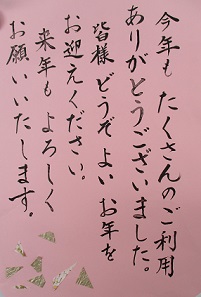 今年も たくさんのご利用
ありがとうございました。
皆様 どうぞ よい お年を
お迎えください。
来年も よろしく
お願いいたします。